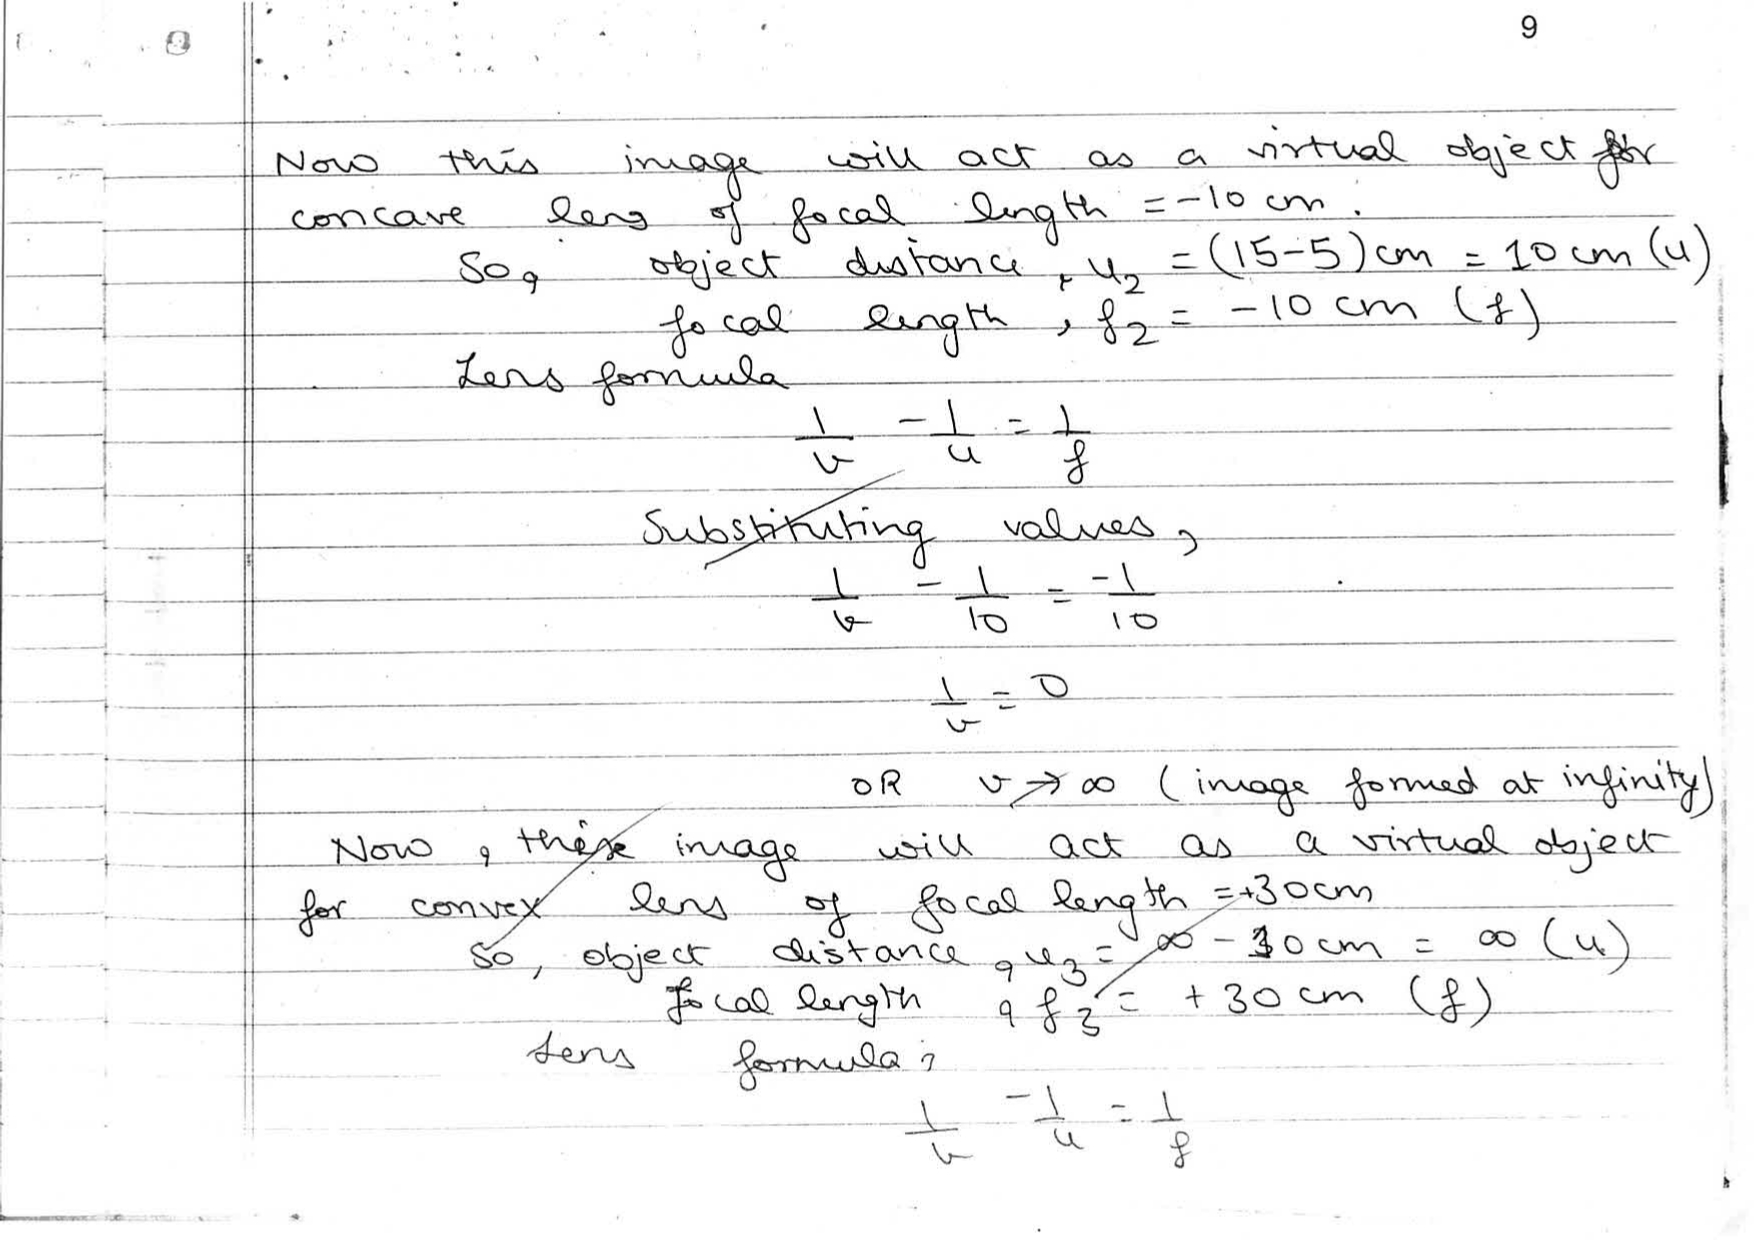 9
Now this image will act as a virtual object for
concave lens of focal length = -10 cm.
So, object distance, u₂ = (15-5) cm = 10 cm (u)
focal length, f₂ = -10 cm (f)
Lens formula
1/v - 1/u = 1/f
Substituting values,
1/v - 1/10 = -1/10
1/v = 0
OR v → ∞ (image formed at infinity)
Now, this image will act as a virtual object
for convex lens of focal length = +30cm
So, object distance, u₃ = ∞ - 10 cm = ∞ (u)
Focal length, f₃ = +30 cm (f)
Lens formula,
1/v - 1/u = 1/f